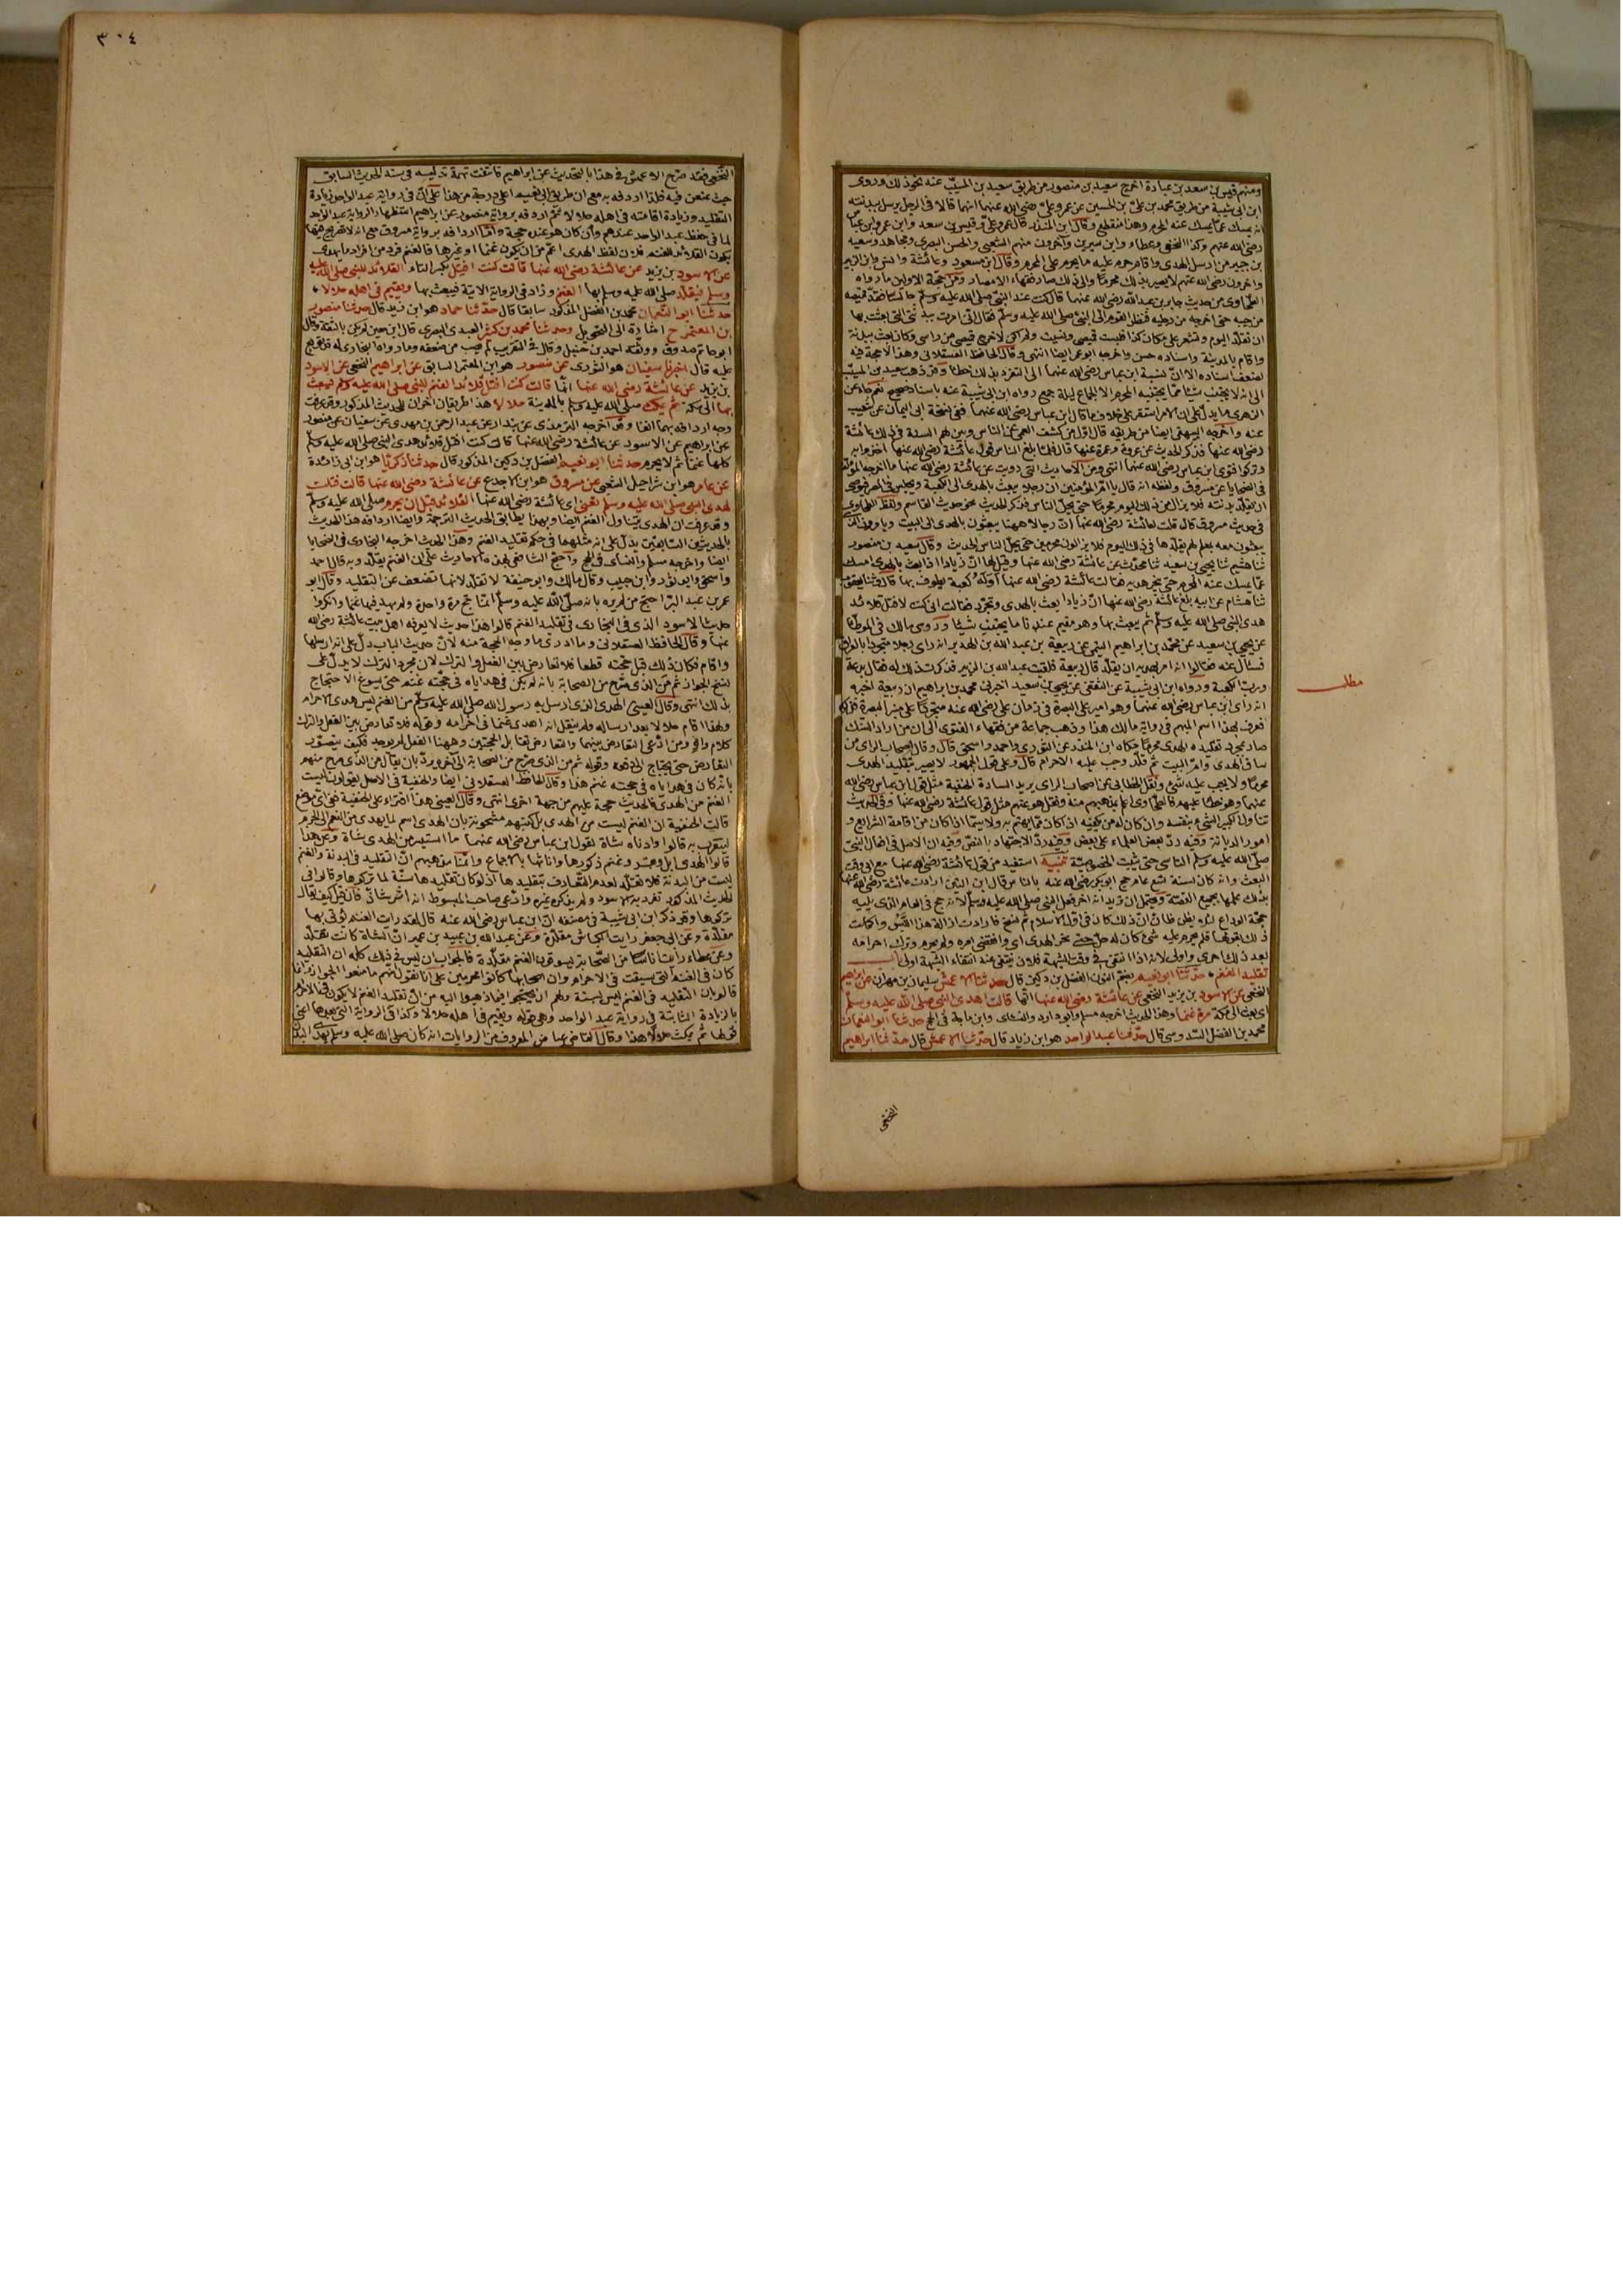 ومنهم قيس بن سعد بن عبادة اخرج سعيد بن منصور من طريق سعيد بن المسيّب عنه نحو ذلك وروى
ابن ابى شيبة من طريق محمد بن علىّ بن الحسين عن عمر وعلىّ رضى الله عنهما انهما قالا فى الرجل يرسل ببدنته
انه يمسك عمّا يمسك عنه المحرم وهذا منقطع وقال ابن المنذر قال عمر وعلىّ وقيس بن سعد وابن عمر وابن عباس
رضى الله عنهم وكذا النخعى وعطاء وابن سيرين وآخرون منهم الشعبى والحسن البصرى ومجاهد وسعيد
بن جبير من ارسل الهدى واقام حرم عليه ما يحرم على المحرم وقال ابن مسعود وعائشة وانس وابن الزبير
وآخرون رضى الله عنهم لا يصير بذلك محرمًا والى ذلك صار فقهاء الامصار ومن حجة الاولين ما رواه
الطحاوى من حديث جابر بن عبدالله رضى الله عنهما قال كنت عند النبىّ صلى الله عليه وسلّم جالسًا فقدّ قميصه
من جيبه حتى اخرجه من رجليه فنظر القوم الى النبىّ صلى الله عليه وسلّم فقال انى امرت ببدنى التى بعثت بها
ان تقلّد اليوم وتشعر على مكان كذا فلبست قميصى ونسيت ولم اكن لاخرج قميصى من راسى وكان بعث ببدنة
واقام بالمدينة واسناده حسن واخرجه ابو عمر ايضا انتهى وقال الحافظ العسقلانى وهذا لا حجة فيه
لضعف اسناده الا انّ نسبة ابن عباس رضى الله عنهما الى التفرد بذلك خطأ وقد ذهب سعيد بن المسيّب
الى انه لا يجتنب شيئا مما يجتنبه المحرم الا الجماع ليلة جمع رواه ابن ابى شيبة عنه باسناد صحيح نعم جاء عن
الزهرى ما يدلّ على ان الامر استقر على خلاف ما قال ابن عباس رضى الله عنهما ففى نسخة ابى اليمان عن شعيب
عنه واخرجه البيهقى ايضا من طريقه قال اول من كشف العمى عن الناس وبين لهم السنة فى ذلك عائشة
رضى الله عنها فذكر الحديث عن عروة وعمرة عنها قال فلما بلغ الناس قول عائشة رضى الله عنها اخذوا به
وتركوا فتوى ابن عباس رضى الله عنهما انتهى ومن الاحاديث التى رويت عن عائشة رضى الله عنها ما اخرجه المؤلف
فى الضحايا عن مسروق ولفظه انه قال يا امّ المؤمنين ان رجلا يبعث بالهدى الى الكعبة ويجلس فى المصر فيوصى
ان تقلّد بدنته فلا يزال من ذلك اليوم محرمًا حتى يحلّ الناس فذكر الحديث نحو حديث القاسم ولفظ الطحاوى
فى حديث مسروق قال قلت لعائشة رضى الله عنها انّ رجالا ههنا يبعثون بالهدى الى البيت ويامرون الذين
يبعثون معه بمعلم لهم يقلّدها فى ذلك اليوم فلا يزالون محرمين حتى يحلّ الناس الحديث وقال سعيد بن منصور
ثنا هشيم ثنا يحيى بن سعيد ثنا محدّث عن عائشة رضى الله عنها وقيل لها انّ زيادا اذا بعث بالهدى امسك
عمّا يمسك عنه المحرم حتى ينحر هديه فقالت عائشة رضى الله عنها أوَله كعبة يطوف بها قال وثنا يعقوب
ثنا هشام عن ابيه بلغ عائشة رضى الله عنها انّ زيادا بعث بالهدى وتجرّد فقالت ان كنت لافتل قلائد
هدى النبى صلى الله عليه وسلّم ثم يبعث بها وهو مقيم عندنا ما يجتنب شيئا وروى مالك فى الموطّأ
عن يحيى بن سعيد عن محمّد بن ابراهيم التيمى عن ربيعة بن عبد الله بن الهدير انه راى رجلا متجردا بالعراق
فسأل عنه فقالوا انه امر بهديه ان يقلّد قال ربيعة فلقيت عبدالله بن الزبير فذكرت ذلك له فقال بدعة
وربّ الكعبة ورواه ابن ابى شيبة عن الثقفى عن يحيى بن سعيد اخبرنى محمد بن ابراهيم ان ربيعة اخبره
انه راى ابن عباس رضى الله عنهما وهو امير على البصرة فى زمان على رضى الله عنه متجردًا على منبر البصرة فذكره
فعرف بهذا اسم المبهم فى رواية مالك هذا وذهب جماعة من فقهاء الفتوى الى ان من اراد النسك
صار بمجرد تقليده الهدى محرمًا حكاه ابن المنذر عن الثورى واحمد واسحق قال وقال اصحاب الراى من
ساق الهدى وامّ البيت ثم قلّد وجب عليه الاحرام قال وعلى قول الجمهور لا يصير بتقليد الهدى
محرمًا ولا يجب عليه شئ ونقل الخطابى عن اصحاب الراى يريد السادة الحنفية مثل قول ابن عباس رضى الله
عنهما وهو خطأ عليهم فالطحاوى اعلم بمذهبهم منه ونقل هو عنهم مثل قول عائشة رضى الله عنها وفى الحديث
تناول الكبير الشئ بنفسه وان كان له من يكفيه اذا كان مما يهتم به ولا سيّما اذا كان من اقامة الشرايع و
امور الديانة وفيه ردّ بعض العلماء على بعض وفيه ردّ الاجتهاد بالنصّ وفيه ان الاصل فى افعال النبىّ
صلّى الله عليه وسلّم التاسى حتى يثبت الخصوصيّة تنبيه استفيد من قول عائشة رضى الله عنها مع ابى وقت
البعث وانه كان لسنة تسع عام حج ابوبكر رضى الله عنه بالناس قال ابن التين ارادت عائشة رضى الله عنها
بذلك علمها بجميع القصّة ويحتمل ان تريد انه آخر فعل النبى صلى الله عليه وسلّم لانه حج فى العام الذى يليه
حجّة الوداع لئلا يظن ظانّ انّ ذلك كان فى اوّل الاسلام ثم نسخ فارادت ازالة هذا اللّبس واكملت
ذلك بقولها فلم يحرم عليه شئ كان له حلّ حتى نحر الهدى اى وانقضى امره ولم يحرم وترك احرامه
بعد ذلك احرى واولى لانه اذا انتفى فى وقت الشبهة فلان ينتفى عند انتفاء الشبهة اولى باب
تقليد الغنم حدّثنا ابو نعيم بضم النون الفضل بن دكين قال حدثنا الاعمش سليمان بن مهران عن ابراهيم
النخعى عن الاسود بن يزيد النخعى عن عائشة رضى الله عنها انّها قالت اهدى النبى صلى الله عليه وسلّم
اى بعث الى مكة مرة غنما وهذا الحديث اخرجه مسلم وابو داود والنسائى وابن ماجة فى الحج حدثنا ابو النعمان
محمد بن الفضل السّدوسى قال حدّثنا عبدالواحد هو ابن زياد قال حدّثنا الاعمش قال حدّثنا ابراهيم
النخعى
مطلب
٣٠٤
النّخعى فقد صرّح الاعمش فى هذا بالتحديث عن ابراهيم فانتفت تهمة تدليسه فى سند الحديث السابق
حيث عنعن فيه فلذا اردفه به مع ان طريق ابى نعيم اعلى درجة من هذا على انّ فى رواية عبد الواحد زيادة
التقليد وزيادة اقامته فى اهله حلالا ثمّ اردفه برواية منصور عن ابراهيم استظهارا لرواية عبد الواحد
لما فى حفظ عبد الواحد عندهم وان كان هو عنده حجة وانما اردافه برواية مسروق مع انه لا تصريح فيها
بكون القلائد للغنم فلان لفظ الهدى اعمّ من ان يكون غنما او غيرها فالغنم فرد من افراد ما يهدى
عن الاسود بن يزيد عن عائشة رضى الله عنها قالت كنت افتل بكسر التاء القلائد للنبى صلى الله عليه
وسلم فيقلّد صلى الله عليه وسلم بها الغنم وزاد فى الرواية الآتية فيبعث بها ويقيم فى اهله حلالا
حدثنا ابو النّعمان محمد بن الفضل المذكور سابقا قال حدّثنا حماد هو ابن زيد قال حدثنا منصور
بن المعتمر ح اشارة الى التحويل وحدثنا محمد بن كثير العبدى البصرى قال ابن معين لم يكن بالثقة وقال
ابو حاتم صدوق ووثّقه احمد بن حنبل وقال فى التقريب لم يصب من ضعفه وما رواه البخارى له قد توبع
عليه قال اخبرنا سفيان هو الثورى عن منصور هو ابن المعتمر السابق عن ابراهيم النخعى عن الاسود
بن يزيد عن عائشة رضى الله عنها انّها قالت كنت افتل قلائد الغنم للنبى صلى الله عليه وسلم فيبعث
بها الى مكة ثم يمكث صلى الله عليه وسلم بالمدينة حلالا هذا طريقان آخران للحديث المذكور وقد عرفت
وجه اردافه بهما آنفا وقد اخرجه الترمذى عن بندار عن عبدالرحمن بن مهدى عن سفيان عن منصور
عن ابراهيم عن الاسود عن عائشة رضى الله عنها قالت كنت افتل قلائد هدى النبى صلى الله عليه وسلّم
كلها غنما ثم لا يحرم حدثنا ابو نعيم الفضل بن دكين المذكور قال حدثنا زكريّا هو ابن ابى زائدة
عن عامر هو ابن شراحيل الشعبى عن مسروق هو ابن الاجدع عن عائشة رضى الله عنها قالت فتلت
لهدى النبى صلى الله عليه وسلم تعنى اى عائشة رضى الله عنها القلائد قبل ان يحرم صلى الله عليه وسلّم
وقد عرفت ان الهدى يتناول الغنم ايضا وبهذا يطابق الحديث الترجمة وايضا اردافه هذا الحديث
بالحديثين السّابقين يدلّ على انه مثلهما فى حكم تقليد الغنم وهذا الحديث اخرجه البخارى فى الضحايا
ايضا واخرجه مسلم والنسائى فى الحج واحتج الشافعى بهذه الاحاديث على ان الغنم يقلّد وبه قال احمد
واسحق وابو ثور وابن حبيب وقال مالك وابو حنيفة لا تقلّد لانها تضعف عن التقليد وقال ابو
عمر بن عبد البرّ احتج من لم يره بانه صلّى الله عليه وسلّم انّما حج مرة واحدة ولم يهد فيها غنما وانكروا
حديث الاسود الذى فى البخارى فى تقليد الغنم قالوا هذا حديث لا يعرفه اهل بيت عائشة رضى الله
عنها وقال الحافظ العسقلانى وما ادرى ما وجه الحجة منه لانّ حديث الباب دلّ على انه ارسلها
واقام فكان ذلك قبل حجّته قطعا فلا تعارض بين الفعل والترك لان مجرد الترك لا يدلّ على
نسخ الجواز ثم من الذى صرّح من الصحابة بانه لم يكن فى هداياه فى حجّته غنم حتى يسوغ الاحتجاج
بذلك انتهى وقال العينى الهدى الذى ارسل به رسول الله صلى الله عليه وسلّم من الغنم ليس هدى الاحرام
ولهذا اقام حلالا بعد ارساله ولم ينقل انه اهدى غنما فى احرامه وقوله فلا تعارض بين الفعل والترك
كلام واهٍ ومن ادّعى التعارض بينهما والتعارض تقابل الحجّتين وههنا الفعل لم يوجد فكيف يتصوّر
التعارض حتى يحتاج الى دفعه وقوله ثم من الذى صرّح من الصحابة الى آخره يردّ بان يقال من الذى صرّح منهم
بانّه كان فى هداياه فى حجته غنم هذا وقال الحافظ العسقلانى ايضا والحنفية فى الاصل يقولون ليست
الغنم من الهدى فالحديث حجة عليهم من جهة اخرى انتهى وقال العينى هذا افتراء على الحنفية ففى اىّ موضع
قالت الحنفية ان الغنم ليست من الهدى بل كتبهم مشحونة بان الهدى اسم لما يهدى من النعم الى الحرم
ليتقرب به قالوا وادناه شاة لقول ابن عباس رضى الله عنهما ما استيسر من الهدى شاة وعن هذا
قالوا الهدى ابل وبقر وغنم ذكورها واناثها بالاجماع وانّما مذهبهم انّ التقليد فى البدنة والغنم
ليست من البدنة فلا تقلّد لعدم التّعارف بتقليدها اذ لو كان تقليدها سنّة لما تركوها وقالوا فى
الحديث المذكور تفرد به الاسود ولم يذكره غيره وادّعى صاحب المبسوط انه اثر شاذّ فان قيل كيف يقال
تركوها وقد ذكر ابن ابى شيبة فى مصنفه انّ ابن عباس رضى الله عنه قال لقد رايت الغنم يؤتى بها
مقلّدة وعن ابى جعفر رايت الكباش مقلّدة وعن عبدالله بن عبيد بن عمير انّ الشاة كانت تقلّد
وعن عطاء رأيت اناسًا من الصّحابة يسوقون الغنم مقلّدة فالجواب ان ليس فى ذلك كلّه ان التقليد
كان فى الغنم التى سيقت فى الاحرام وان اصحابها كانوا محرمين على انا نقول انّهم ما منعوا الجواز وانّما
قالوا بان التقليد فى الغنم ليس بسنة
بالزيادة الثابتة فى رواية عبد الواحد وهى قوله ويقيم فى اهله حلالا وكذا فى الرواية التى بعدها اعنى
قولها ثم يمكث حلالا هذا وقال القاضى عياض المعروف من الروايات انه كان صلى الله عليه وسلم يهدى البدن